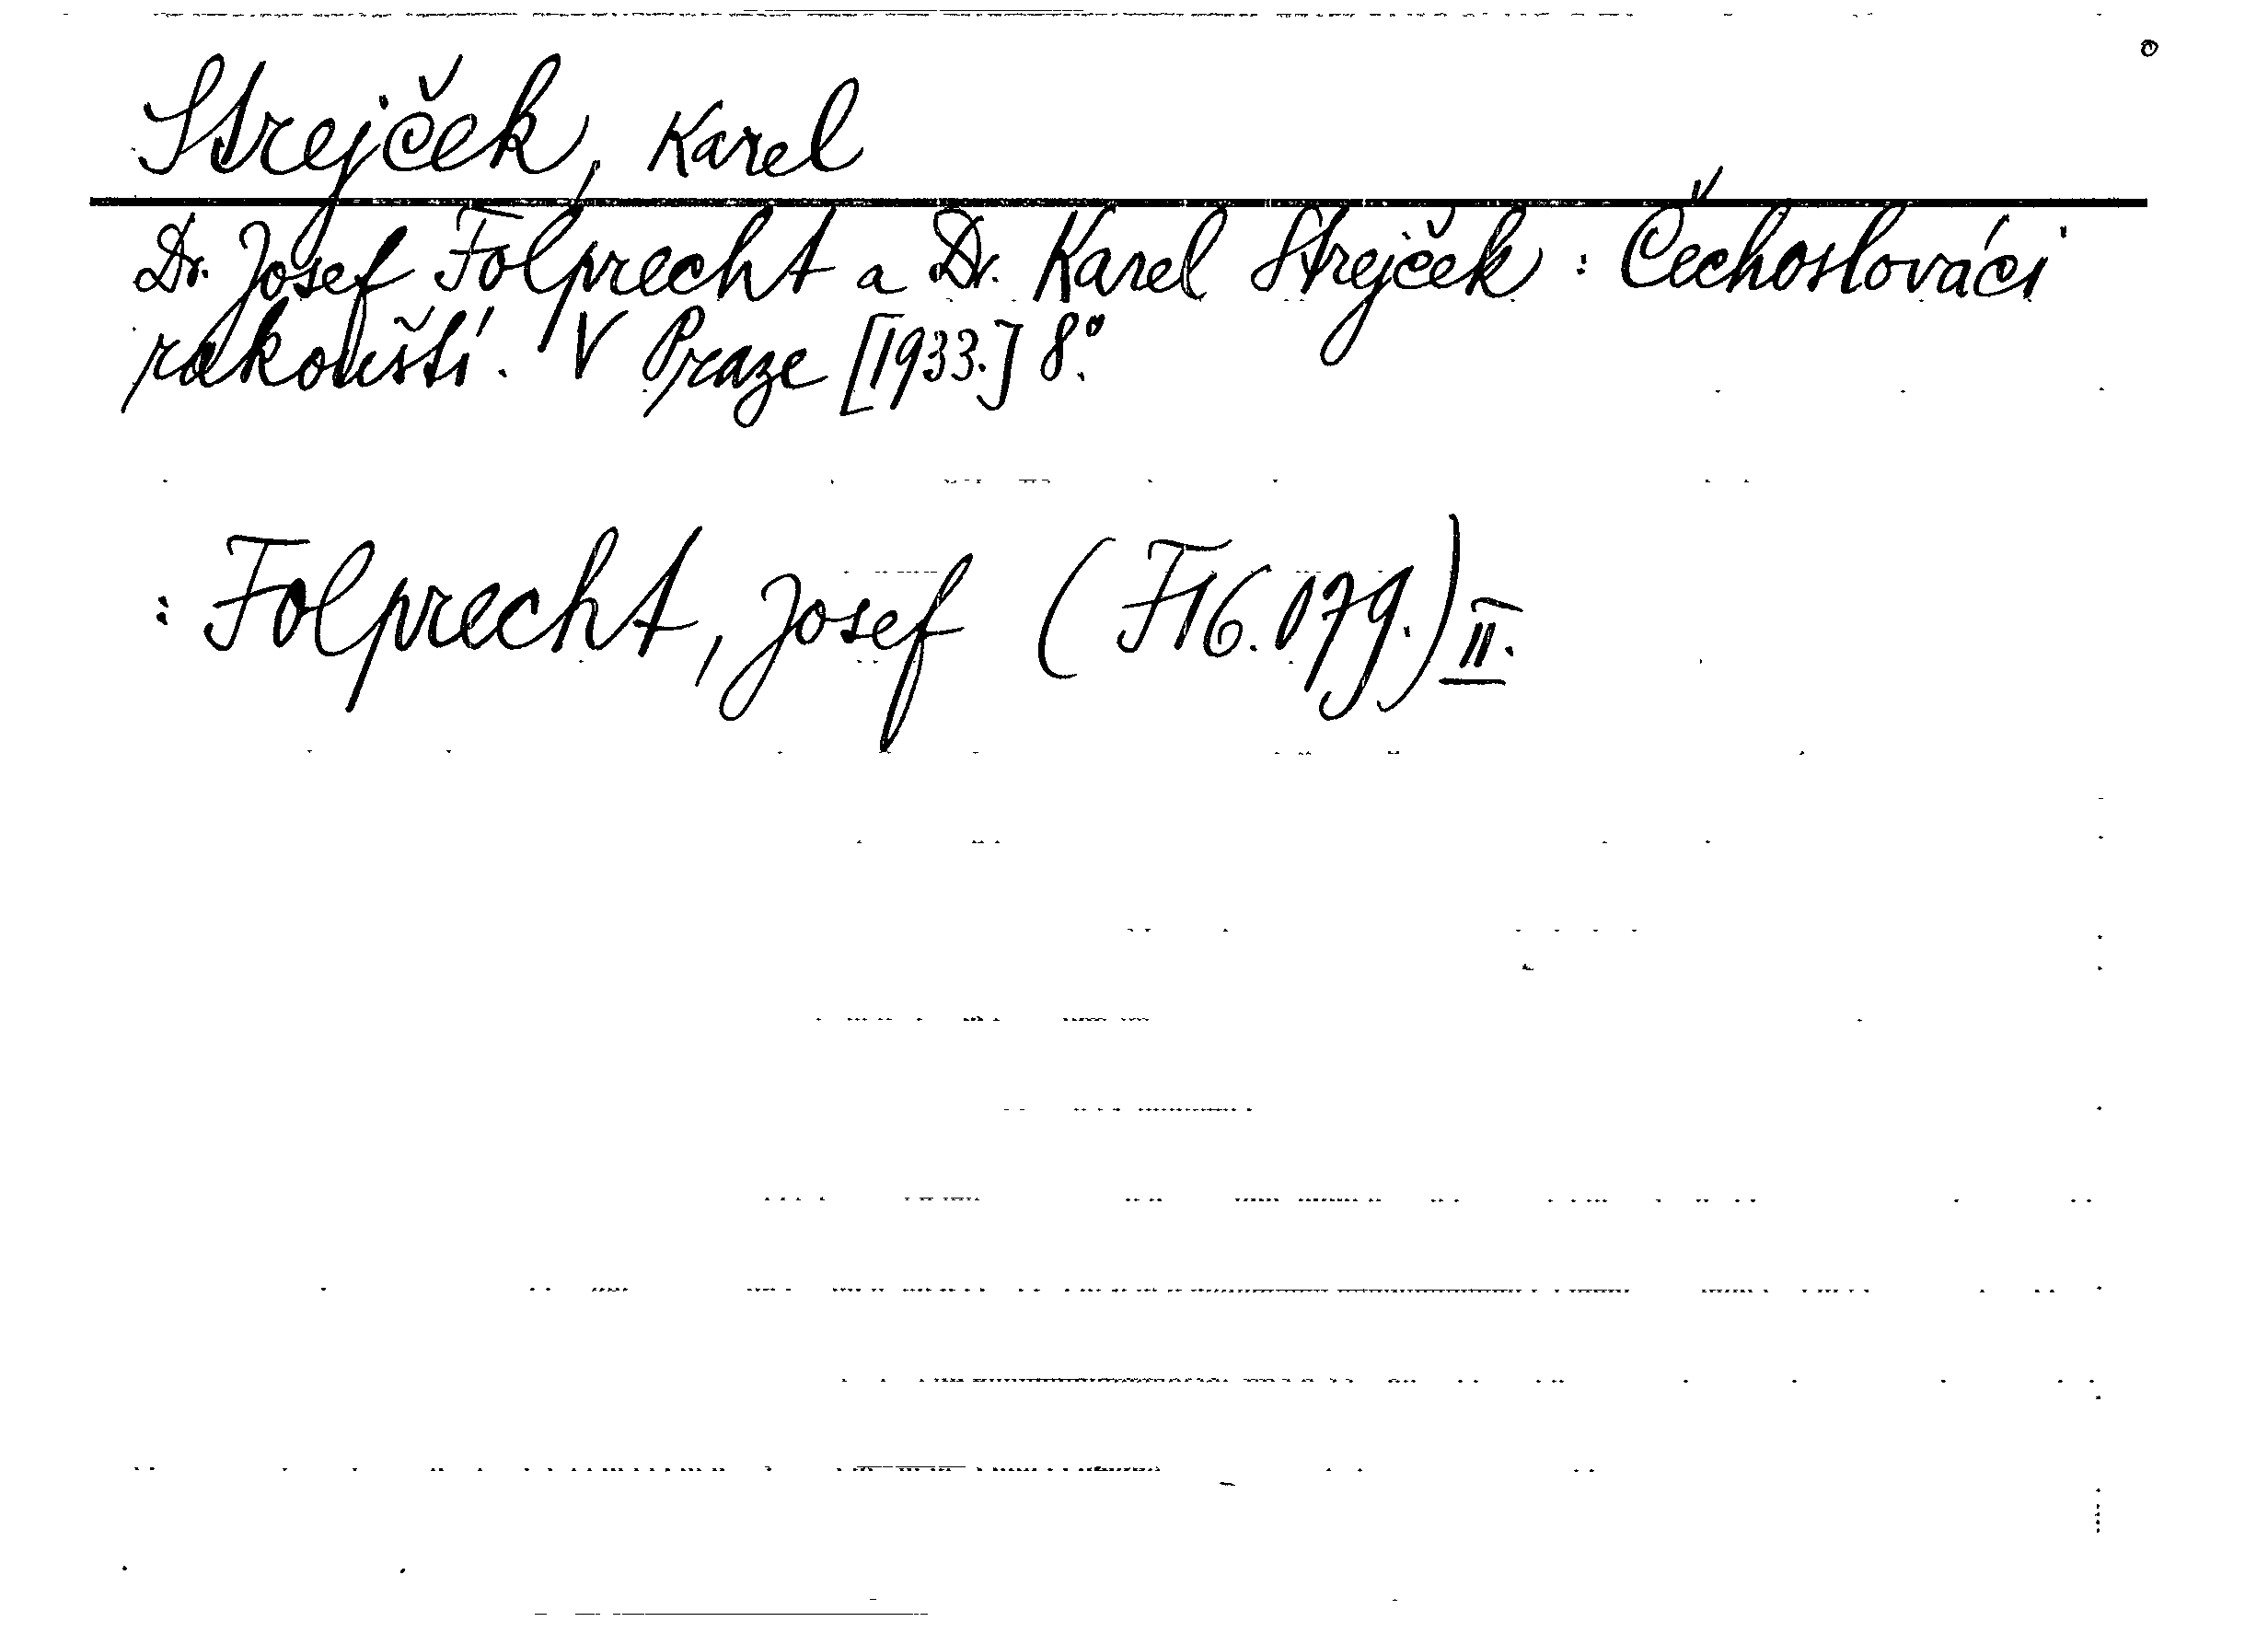 Strejček, Karel
Dr. Josef Folprecht a Dr. Karel Strejček : Čechoslováci
rakouští. V Praze [1933.] 8°.
: Folprecht, Josef (F 16.179.) II.